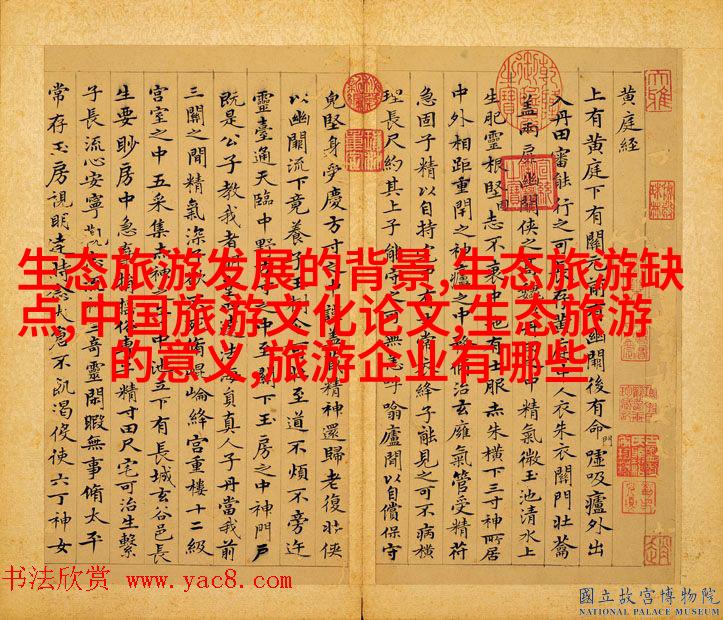 生态旅游发展的背景,生态旅游缺
点,中国旅游文化论文,生态旅游
的意义,旅游企业有哪些
黃庭經
上有黃庭下有關元前有幽闕後有命門噓吸廬外出
入丹田審能行之可長存黃庭中人衣朱衣關門壯蘥
蓋兩扉幽闕俠之高巍丹田之中精氣微玉池清水上
生肥靈根堅固志不衰中池有士服赤朱橫下三寸神所居
中外相距重閇之神廬之中脩治玄癰氣管受精符
急固子精以自持宅中有士常衣絳子能見之可不病橫
理長尺約其上子能守之可無恙呼噏廬間以自償保守
皃堅身受慶方寸之中謹蓋藏精神還歸老復壯俠
以幽闕流下竟養子玉至道不煩不旁迕
靈臺通天臨中野方至關下玉房之中神門戶
既是公子教我者明法海員真人子丹當我前
三關之間精氣深子欲不脩崐崘絳宮重樓十二級
宮室之中五采集赤神之子中池立下有長城玄谷邑長
生要眇房中急棄捐俗專子精寸田尺宅可治生繫
子長流心安寧觀志流神三奇靈閑暇無事脩太平
常存玉房視明達時念大倉不飢渴役使六丁神女
书法欣赏 www.yac8.com
國立故宮博物院
NATIONAL PALACE MUSEUM